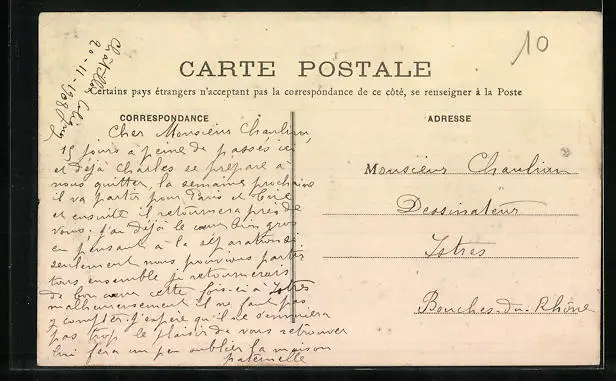 10
20-11-1908
CARTE POSTALE
Certains pays étrangers n'acceptent pas la correspondance de ce côté, se renseigner à la Poste
CORRESPONDANCE
Cher Monsieur Chaulian,
15 jours à peine de passés ici
et déjà Charles se prépare à
nous quitter, la semaine prochaine
il va partir pour Paris et
et ensuite il retournera près de
vous. J'ai déjà le cœur bien gros
en pensant à la séparation si
seulement nous pouvions partir
tous ensemble je retournerais
de bon cœur cette fois-ci à Istres
malheureusement il ne faut pas
y compter. J'espère qu'il ne s'ennuiera
pas trop le plaisir de vous retrouver
lui fera un peu oublier la maison
paternelle
ADRESSE
Monsieur Chaulian
Dessinateur
Istres
Bouches-du-Rhône